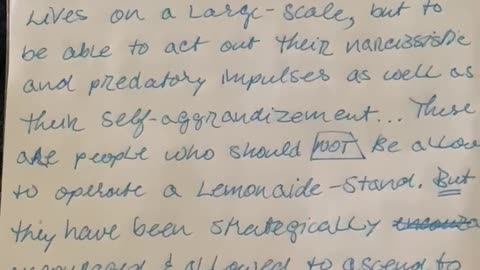 Lives on a Large-scale, but to
be able to act out their narcissistic
and predatory impulses as well as
their self-aggrandizement... These
are people who should NOT Be allow
to operate a Lemonaide-stand. But
they have been strategically
encouraged & allowed to ascend to